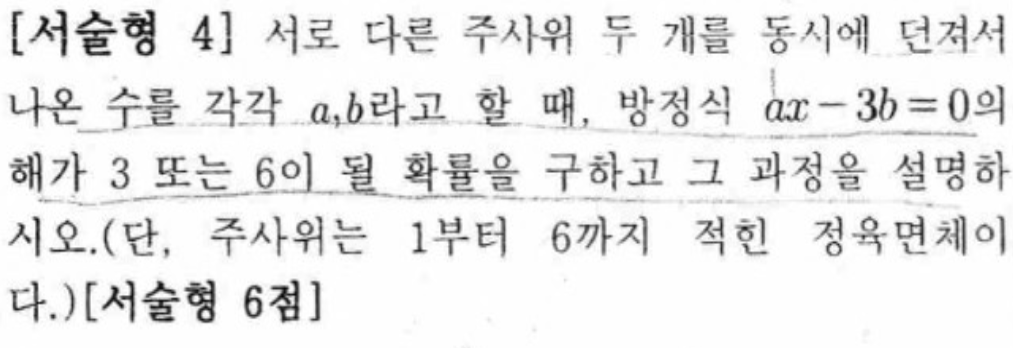 [서술형 4] 서로 다른 주사위 두 개를 동시에 던져서
나온 수를 각각 a,b라고 할 때, 방정식 ax-3b=0의
해가 3 또는 6이 될 확률을 구하고 그 과정을 설명하
시오.(단, 주사위는 1부터 6까지 적힌 정육면체이
다.)[서술형 6점]